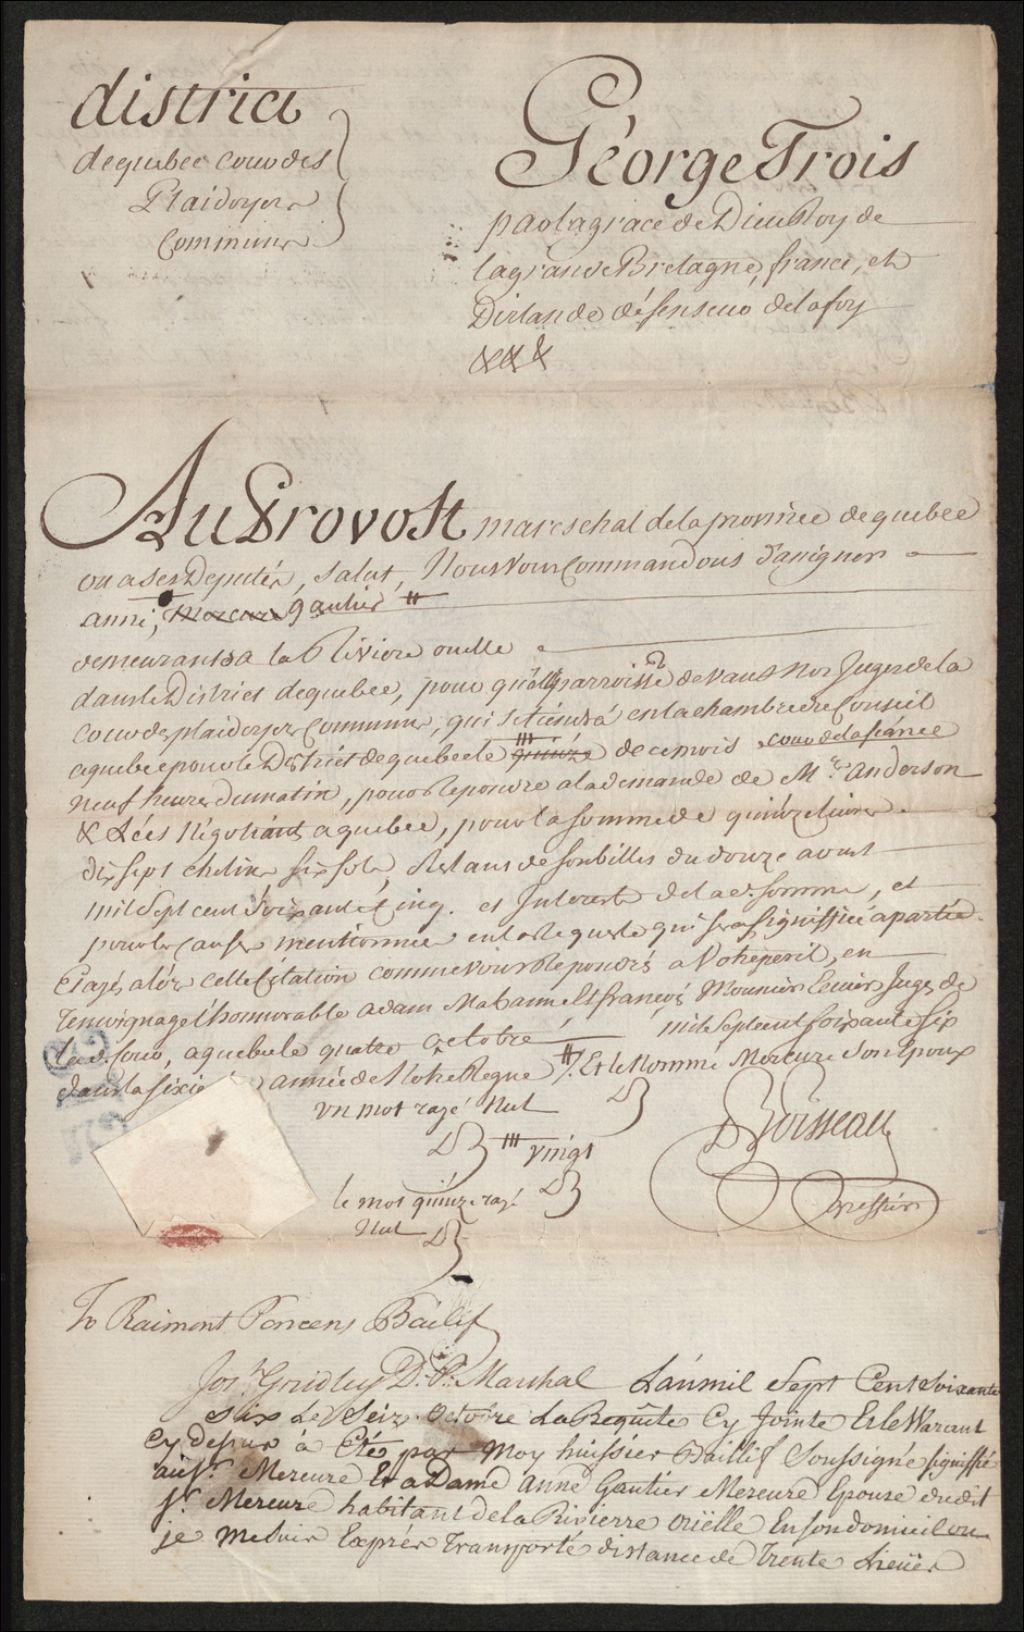 district
de quebec cour des
Plaidoyers
Communs
George Trois
par la grace de Dieu Roy de
la grande Bretagne, france, et
Dirlande défenseur de la foy
&& &
Au Provost mareschal de la province de quebec
ou a ses Deputés, Salut, Nous vous Commandons d'assigner
anne, Mercure Gautier #
demeurants a la Riviere ouelle
dans le District de quebec, pour qu'elle parroisse devant Nos Juges de la
Cour de plaidoyers Communs, qui se tiendra en la chambre de Conseil
a quebec pour le District de quebec le quinze de ce mois, cour de la séance
neuf heures du matin, pour Repondre a la demande de Mrs. Anderson
& Lées Négotiants a quebec, pour la somme de quinze Livres
dix sept chelins six sols, Restans de son billet du douze avril
mil Sept cent Soixante Cinq. et Interests de la d. somme, et
pour les causes mentionnées en la Requeste qui sera signiffiée a partie
avec cette Citation comme vous Repondrés a Votre peril, en
Temoignage l'honnorable adam Mabanne Et françois Mounier Ecuiers Juges de
la d. Cour, a quebec le quatre octobre mil Sept cent soixante six
dans la sixieme année de Notre Regne #. Et le Nomme Mercure son Epoux
un mot razé Nul
vingt
le mot quinze razé
Nul
D Boisseau
Greffier
To Raimont Ponceens Bailif
Josh. Gridley D. P. Marshal L'an mil Sept Cent Soixante
Six Le Seize Octobre La Requête Cy Jointe Et le Warant
Cy dessus à Eté par Moy huissier Baillif Soussigné signiffié
au sr. Mercure Et a Dame Anne Gautier Mercure Epouse du dit
sr. Mercure habitant de la Rivierre oüelle En son domicil ou
je me suis Exprès Transporté distance de Trente Lieües